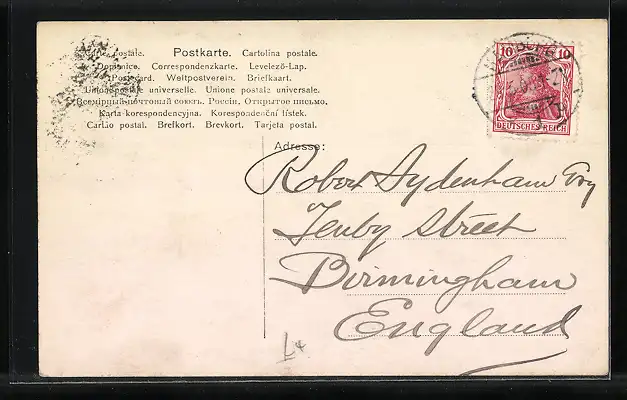 Carte postale. Postkarte. Cartolina postale.
Dopisnice. Correspondenzkarte. Levelező-Lap.
Postcard. Weltpostverein. Briefkaart.
Unionpostale universelle. Unione postale universale.
Всемірный почтовый союзъ. Россія, Открытое письмо.
Karta korespondencyjna. Korespondenční lístek.
Cartão postal. Brefkort. Brevkort. Tarjeta postal.
10 10
DEUTSCHES REICH
Adresse:
Robert Sydenham Esq
Tenby Street
Birmingham
England